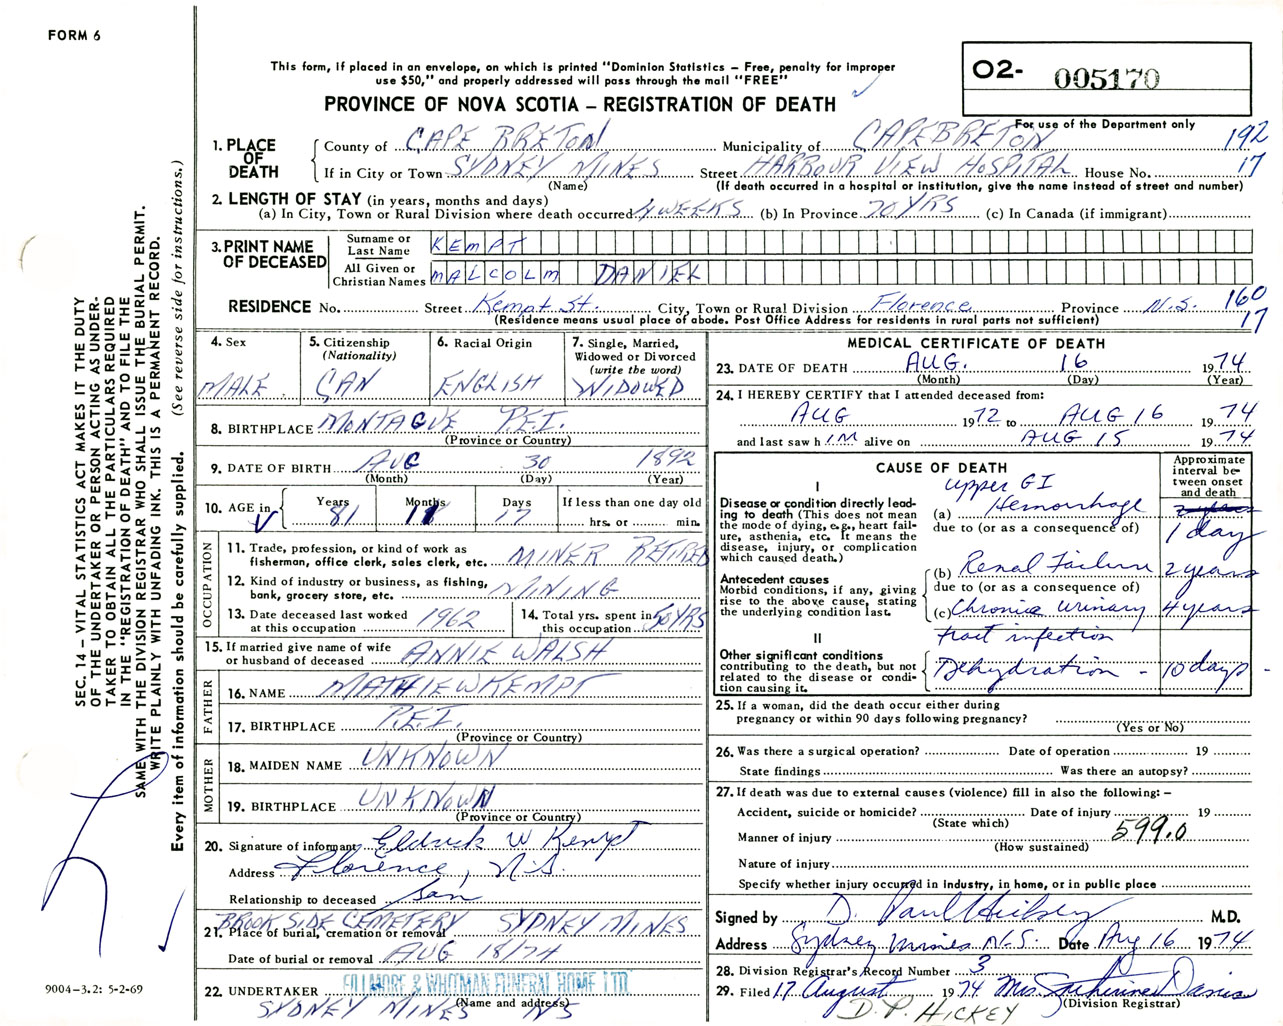 FORM 6
This form, if placed in an envelope, on which is printed "Dominion Statistics – Free, penalty for improper
use $50," and properly addressed will pass through the mail "FREE"
PROVINCE OF NOVA SCOTIA – REGISTRATION OF DEATH
O2- 005170
For use of the Department only
192
17
1. PLACE OF DEATH
County of CAPE BRETON Municipality of CAPE BRETON
If in City or Town SYDNEY MINES Street HARBOUR VIEW HOSPITAL House No.
(Name) (If death occurred in a hospital or institution, give the name instead of street and number)
2. LENGTH OF STAY (in years, months and days)
(a) In City, Town or Rural Division where death occurred 4 WEEKS (b) In Province 70 YRS (c) In Canada (if immigrant)
3. PRINT NAME OF DECEASED
Surname or Last Name KEMPT
All Given or Christian Names MALCOLM DANIEL
RESIDENCE No. Street Kempt St. City, Town or Rural Division Florence Province N.S.
(Residence means usual place of abode. Post Office Address for residents in rural parts not sufficient)
160
17
4. Sex
MALE
5. Citizenship
(Nationality)
CAN
6. Racial Origin
ENGLISH
7. Single, Married,
Widowed or Divorced
(write the word)
WIDOWED
8. BIRTHPLACE MONTAGUE P.E.I.
(Province or Country)
9. DATE OF BIRTH AUG 30 1892
(Month) (Day) (Year)
10. AGE in
Years 81
Months 11
Days 17
If less than one day old
hrs. or min.
OCCUPATION
11. Trade, profession, or kind of work as
fisherman, office clerk, sales clerk, etc. MINER RETIRED
12. Kind of industry or business, as fishing,
bank, grocery store, etc. MINING
13. Date deceased last worked
at this occupation 1962
14. Total yrs. spent in
this occupation 50 YRS
15. If married give name of wife
or husband of deceased ANNIE WALSH
FATHER
16. NAME MATHIEW KEMPT
17. BIRTHPLACE P.E.I.
(Province or Country)
MOTHER
18. MAIDEN NAME UNKNOWN
19. BIRTHPLACE UNKNOWN
(Province or Country)
20. Signature of informant W Kempt
Address Florence, N.S.
Relationship to deceased Son
BROOKSIDE CEMETERY SYDNEY MINES
21. Place of burial, cremation or removal
Date of burial or removal AUG 18/74
22. UNDERTAKER FILLMORE & WHITMAN FUNERAL HOME LTD
(Name and address)
SYDNEY MINES NS
MEDICAL CERTIFICATE OF DEATH
23. DATE OF DEATH AUG. 16 1974
(Month) (Day) (Year)
24. I HEREBY CERTIFY that I attended deceased from:
AUG 1972 to AUG 16 1974
and last saw h IM alive on AUG 15 1974
CAUSE OF DEATH
Approximate
interval be-
tween onset
and death
I
Disease or condition directly lead-
ing to death (This does not mean
the mode of dying, e.g., heart fail-
ure, asthenia, etc. It means the
disease, injury, or complication
which caused death.)
upper GI
(a) Hemorrhage
1 day
due to (or as a consequence of)
Antecedent causes
Morbid conditions, if any, giving
rise to the above cause, stating
the underlying condition last.
(b) Renal Failure 2 years
due to (or as a consequence of)
(c) Chronic urinary 4 years
tract infection
II
Other significant conditions
contributing to the death, but not
related to the disease or condi-
tion causing it.
Dehydration – 10 days –
25. If a woman, did the death occur either during
pregnancy or within 90 days following pregnancy?
(Yes or No)
26. Was there a surgical operation? Date of operation 19
State findings Was there an autopsy?
27. If death was due to external causes (violence) fill in also the following: –
Accident, suicide or homicide? Date of injury 19
(State which)
599.0
Manner of injury
(How sustained)
Nature of injury
Specify whether injury occurred in industry, in home, or in public place
Signed by D. Paul Hickey M.D.
Address Sydney Mines N.S. Date Aug 16 1974
28. Division Registrar's Record Number 3
29. Filed 17 August 1974 Mrs. Catherine Davis
(Division Registrar)
D. P. HICKEY
SEC. 14 – VITAL STATISTICS ACT MAKES IT THE DUTY
OF THE UNDERTAKER OR PERSON ACTING AS UNDER-
TAKER TO OBTAIN ALL THE PARTICULARS REQUIRED
IN THE "REGISTRATION OF DEATH" AND TO FILE THE
SAME WITH THE DIVISION REGISTRAR WHO SHALL ISSUE THE BURIAL PERMIT.
WRITE PLAINLY WITH UNFADING INK. THIS IS A PERMANENT RECORD.
Every item of information should be carefully supplied. (See reverse side for instructions.)
9004–3.2: 5-2-69